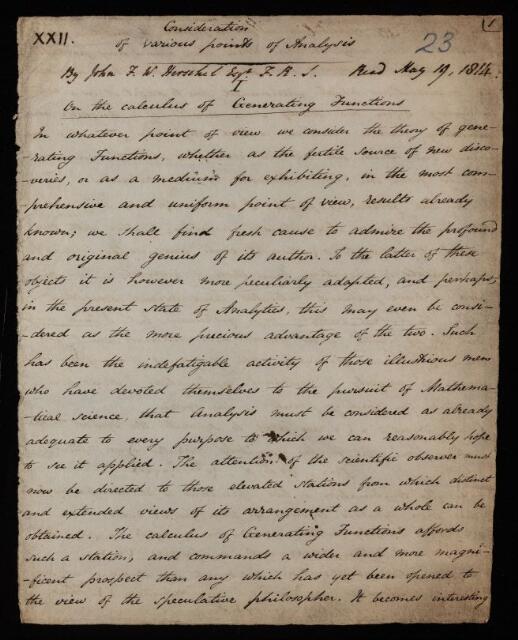 1
Consideration
XXII. of various points of Analysis 23
By John F. W. Herschel Esqr. F. R. S. Read May 19, 1814.
I
On the calculus of Generating Functions
In whatever point of view we consider the theory of gene-
-rating Functions, whether as the fertile source of new disco-
-veries, or as a medium for exhibiting, in the most com-
-prehensive and uniform point of view, results already
known; we shall find fresh cause to admire the profound
and original genius of its author. To the latter of these
objects it is however more peculiarly adapted, and perhaps,
in the present state of Analytics, this may even be consi-
-dered as the more precious advantage of the two. Such
has been the indefatigable activity of those illustrious men
who have devoted themselves to the pursuit of Mathema-
-tical science, that Analysis must be considered as already
adequate to every purpose to which we can reasonably hope
to see it applied. The attention of the scientific observer must
now be directed to those elevated stations from which distinct
and extended views of its arrangement as a whole can be
obtained. The calculus of Generating Functions affords
such a station, and commands a wider and more magni-
-ficent prospect than any which has yet been opened to
the view of the speculative philosopher. It becomes interesting